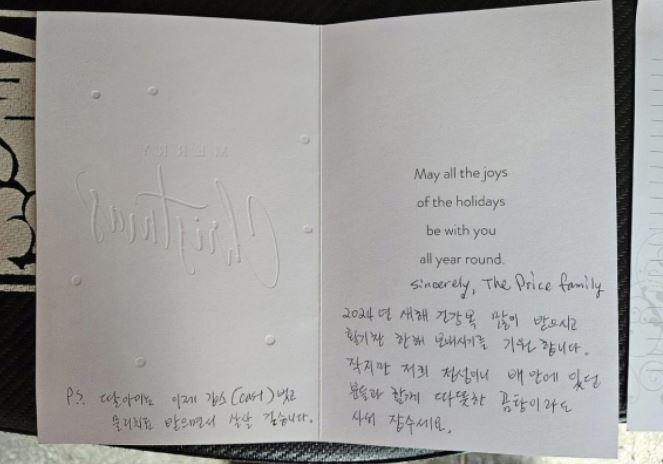 MERRY
Christmas
P.S. 딸아이도 이제 깁스(cast) 벗고
물리치료 받으면서 살살 걷습니다.
May all the joys
of the holidays
be with you
all year round.
Sincerely, The Price family
2024년 새해 건강복 많이 받으시고
활기찬 한해 보내시기를 기원합니다.
작지만 저희 정성이니 배 안에 있던
분들과 함께 따뜻한 곰탕이라도
사서 잡수세요.